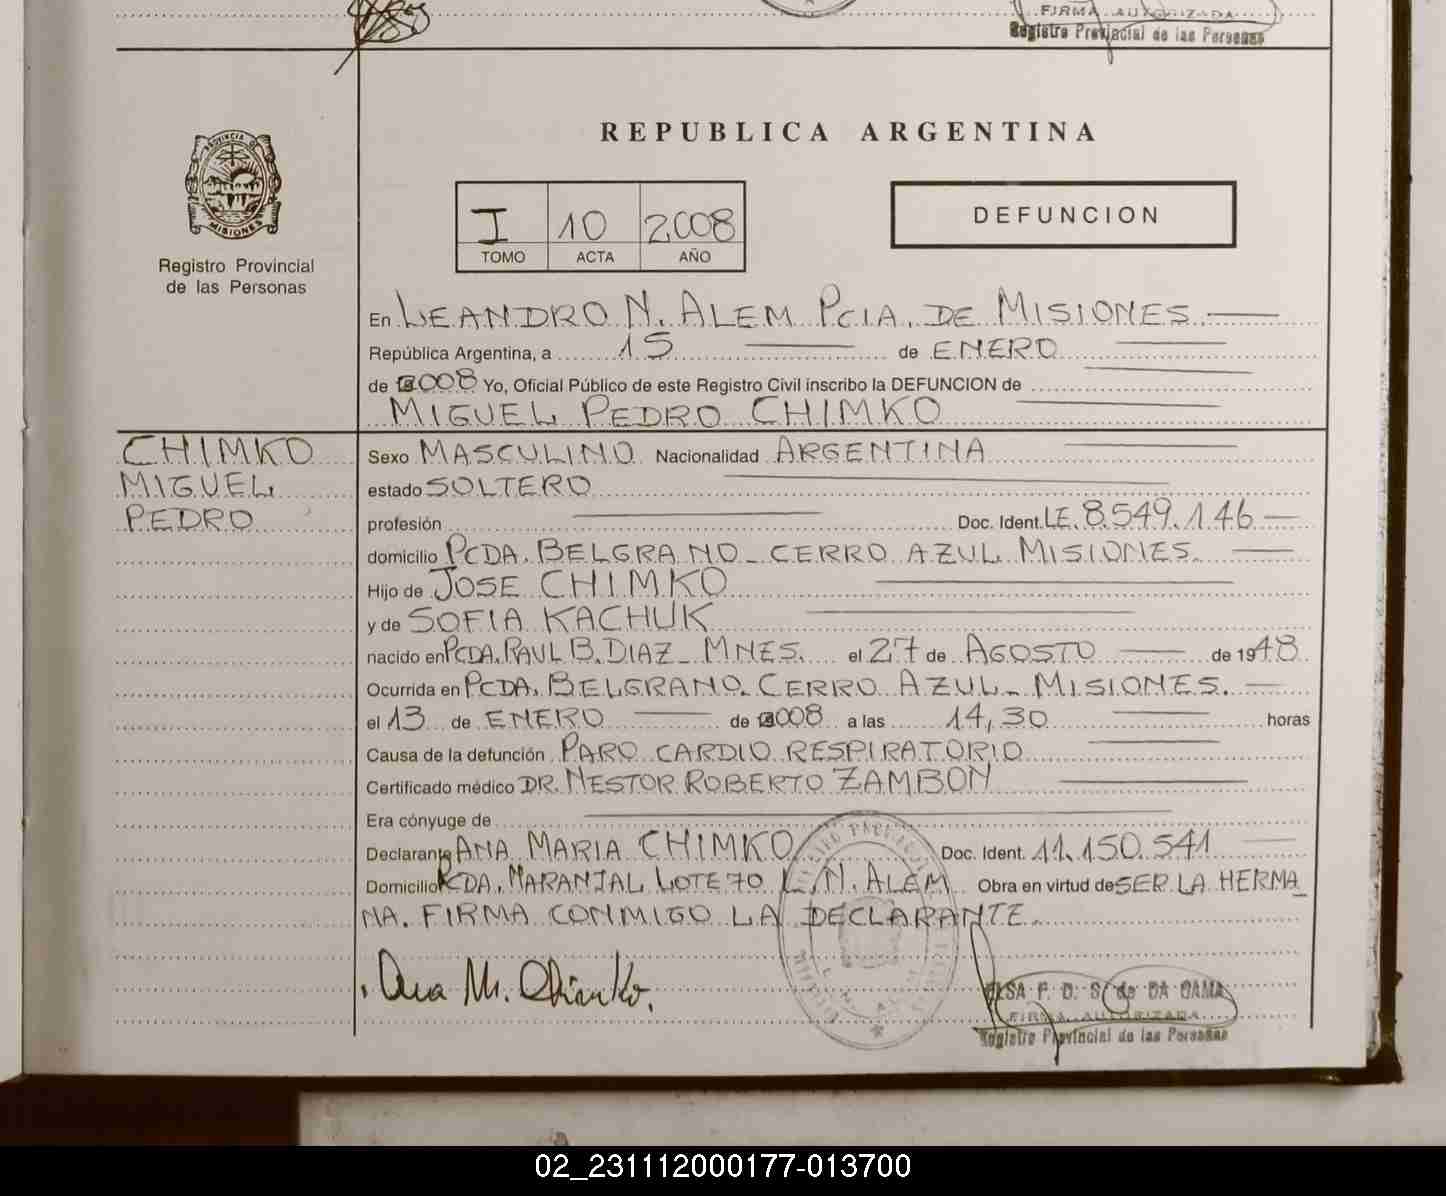 FIRMA AUTORIZADA
Registro Provincial de las Personas
PROVINCIA DE
MISIONES
Registro Provincial
de las Personas
REPUBLICA ARGENTINA
I 10 2008
TOMO ACTA AÑO
DEFUNCION
En LEANDRO N. ALEM PCIA. DE MISIONES
República Argentina, a 15 de ENERO
de 2008 Yo, Oficial Público de este Registro Civil inscribo la DEFUNCION de
MIGUEL PEDRO CHIMKO
CHIMKO
MIGUEL
PEDRO
Sexo MASCULINO Nacionalidad ARGENTINA
estado SOLTERO
profesión Doc. Ident. LE. 8.549.146
domicilio PCDA. BELGRANO - CERRO AZUL MISIONES.
Hijo de JOSE CHIMKO
y de SOFIA KACHUK
nacido en PCDA. RAUL B. DIAZ - MNES. el 27 de AGOSTO de 1948
Ocurrida en PCDA. BELGRANO. CERRO AZUL - MISIONES.
el 13 de ENERO de 2008 a las 14,30 horas
Causa de la defunción PARO CARDIO RESPIRATORIO
Certificado médico DR. NESTOR ROBERTO ZAMBON
Era cónyuge de
Declarante ANA MARIA CHIMKO Doc. Ident. 11.150.541
Domicilio PCDA. NARANJAL LOTE 70 L. N. ALEM Obra en virtud de SER LA HERMA_
NA. FIRMA CONMIGO LA DECLARANTE.
Ana M. Chimko.
ELSA F. D. S. de DA GAMA
FIRMA AUTORIZADA
Registro Provincial de las Personas
02_231112000177-013700